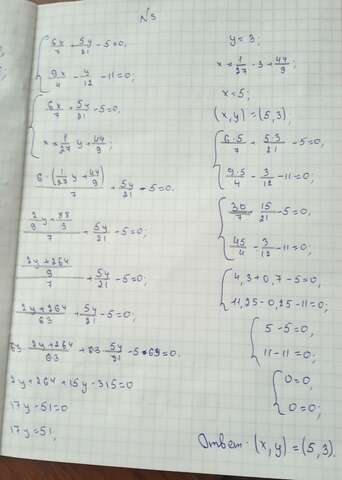 №3
{ 6x/7 + 5y/21 - 5=0,
9x/4 - y/12 - 11=0;
{ 6x/7 + 5y/21 - 5=0,
x = 1/27 y + 44/9;
6·(1/27 y + 44/9)/7 + 5y/21 - 5=0.
(2/9 y + 88/3)/7 + 5y/21 - 5=0;
((2y+264)/9)/7 + 5y/21 - 5=0;
(2y+264)/63 + 5y/21 - 5=0;
63· (2y+264)/63 + 63· 5y/21 - 5·63=0.
2y+264+15y-315=0
17y-51=0
17y=51;
y=3;
x = 1/27 · 3 + 44/9;
x=5;
(x,y)=(5,3);
{ 6·5/7 + 5·3/21 - 5=0,
9·5/4 - 3/12 - 11=0;
{ 30/7 15/21 - 5=0,
45/4 - 3/12 - 11=0;
{ 4,3+0,7-5=0;
11,25-0,25-11=0;
{ 5-5=0,
11-11=0;
{ 0=0,
0=0;
Ответ: (x,y)=(5,3).